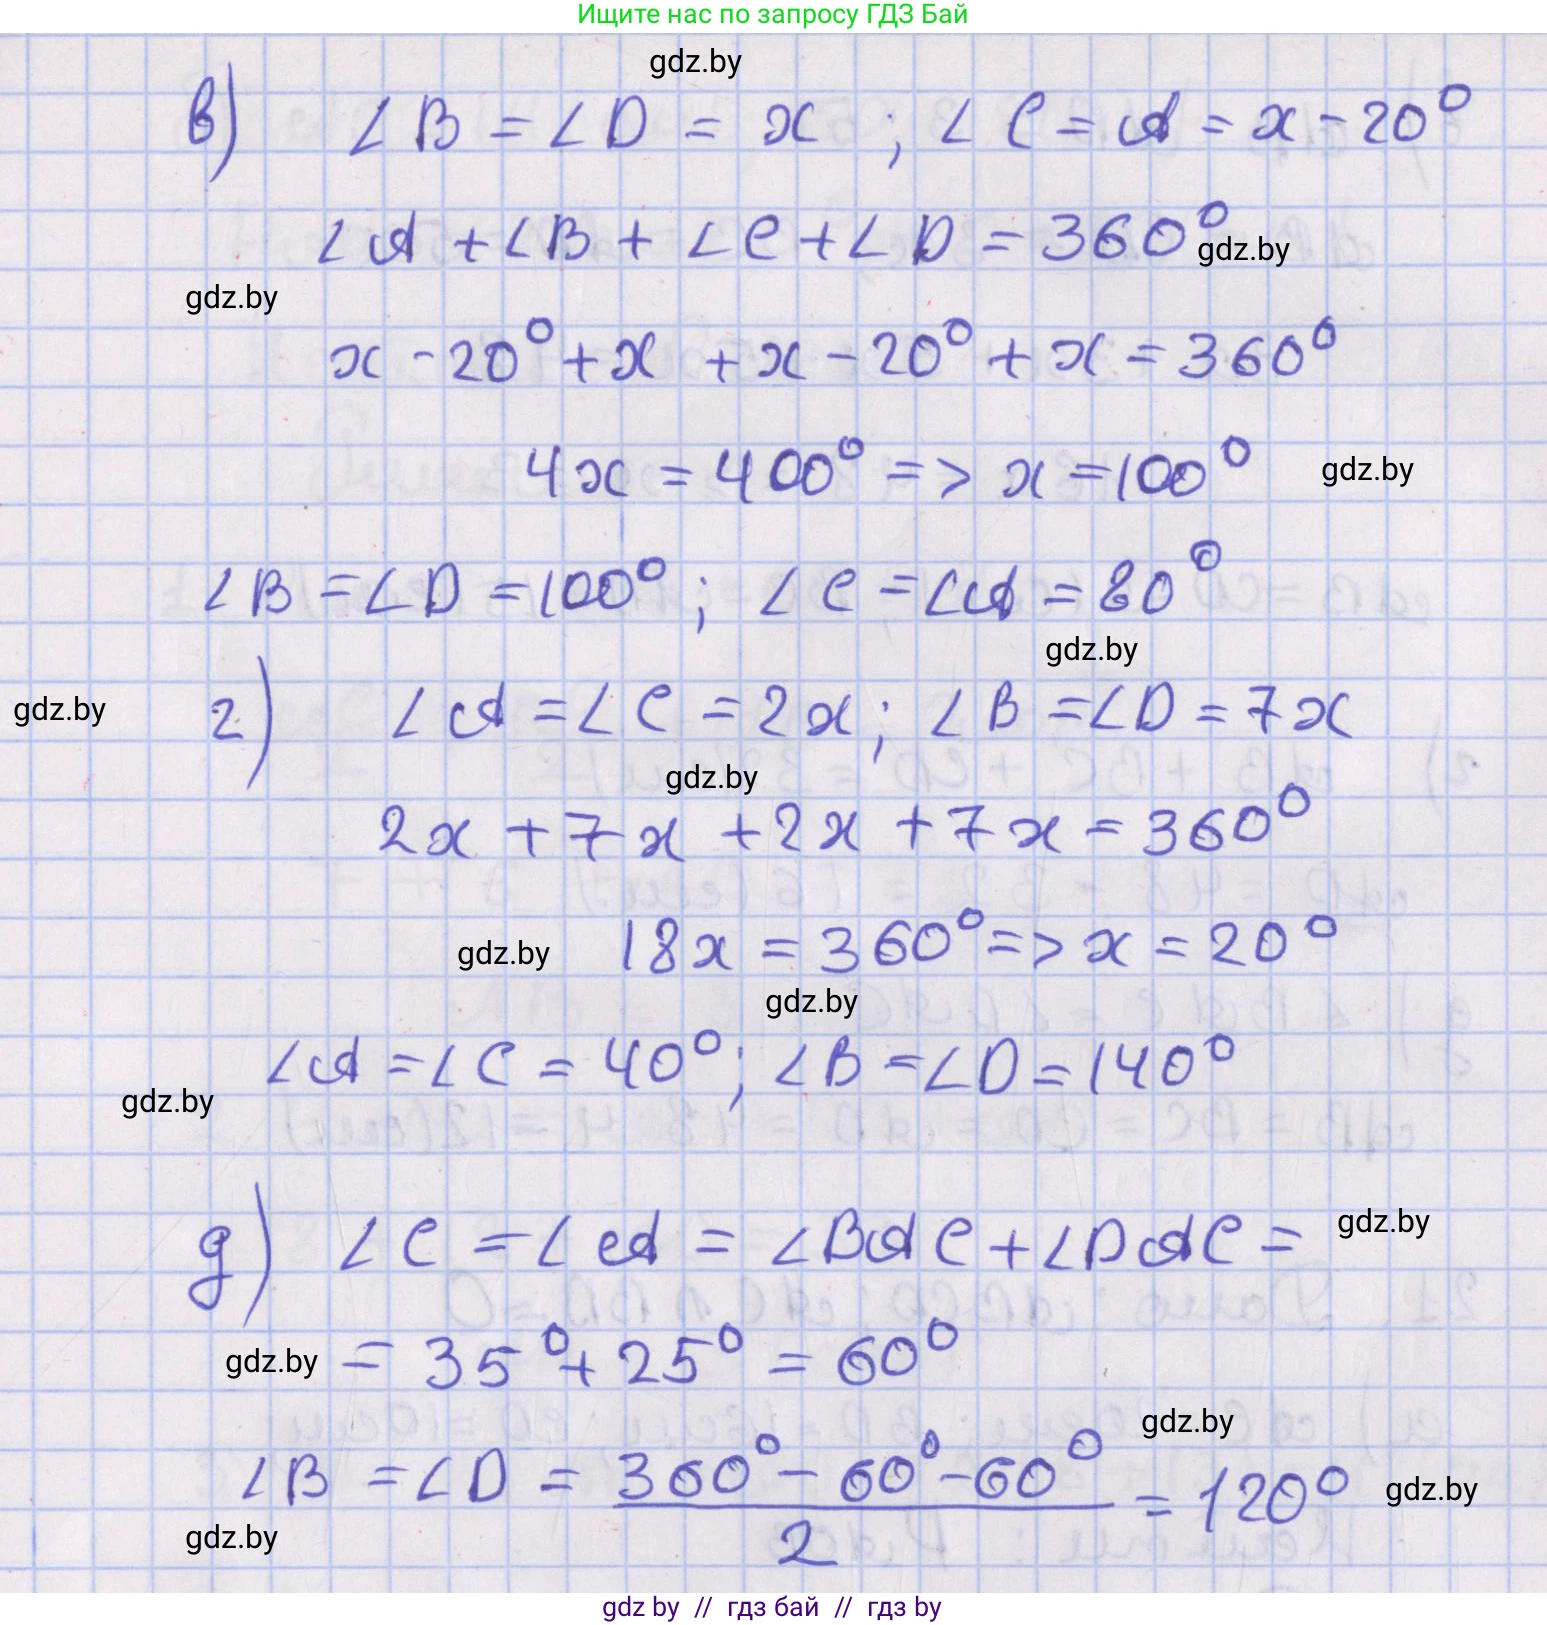 Ищите нас по запросу ГДЗ Бай
gdz.by
в) ∠B = ∠D = x ; ∠C = A = x - 20°
∠A + ∠B + ∠C + ∠D = 360°
gdz.by
gdz.by
x - 20° + x + x - 20° + x = 360°
4x = 400° => x = 100°
gdz.by
∠B = ∠D = 100° ; ∠C = ∠A = 80°
gdz.by
gdz.by
г) ∠A = ∠C = 2x ; ∠B = ∠D = 7x
gdz.by
2x + 7x + 2x + 7x = 360°
gdz.by
18x = 360° => x = 20°
gdz.by
∠A = ∠C = 40° ; ∠B = ∠D = 140°
gdz.by
д) ∠C = ∠A = ∠BAC + ∠DAC =
gdz.by
gdz.by
= 35° + 25° = 60°
gdz.by
∠B = ∠D = (360° - 60° - 60°) / 2 = 120°
gdz.by
gdz.by
gdz by // гдз бай // гдз by